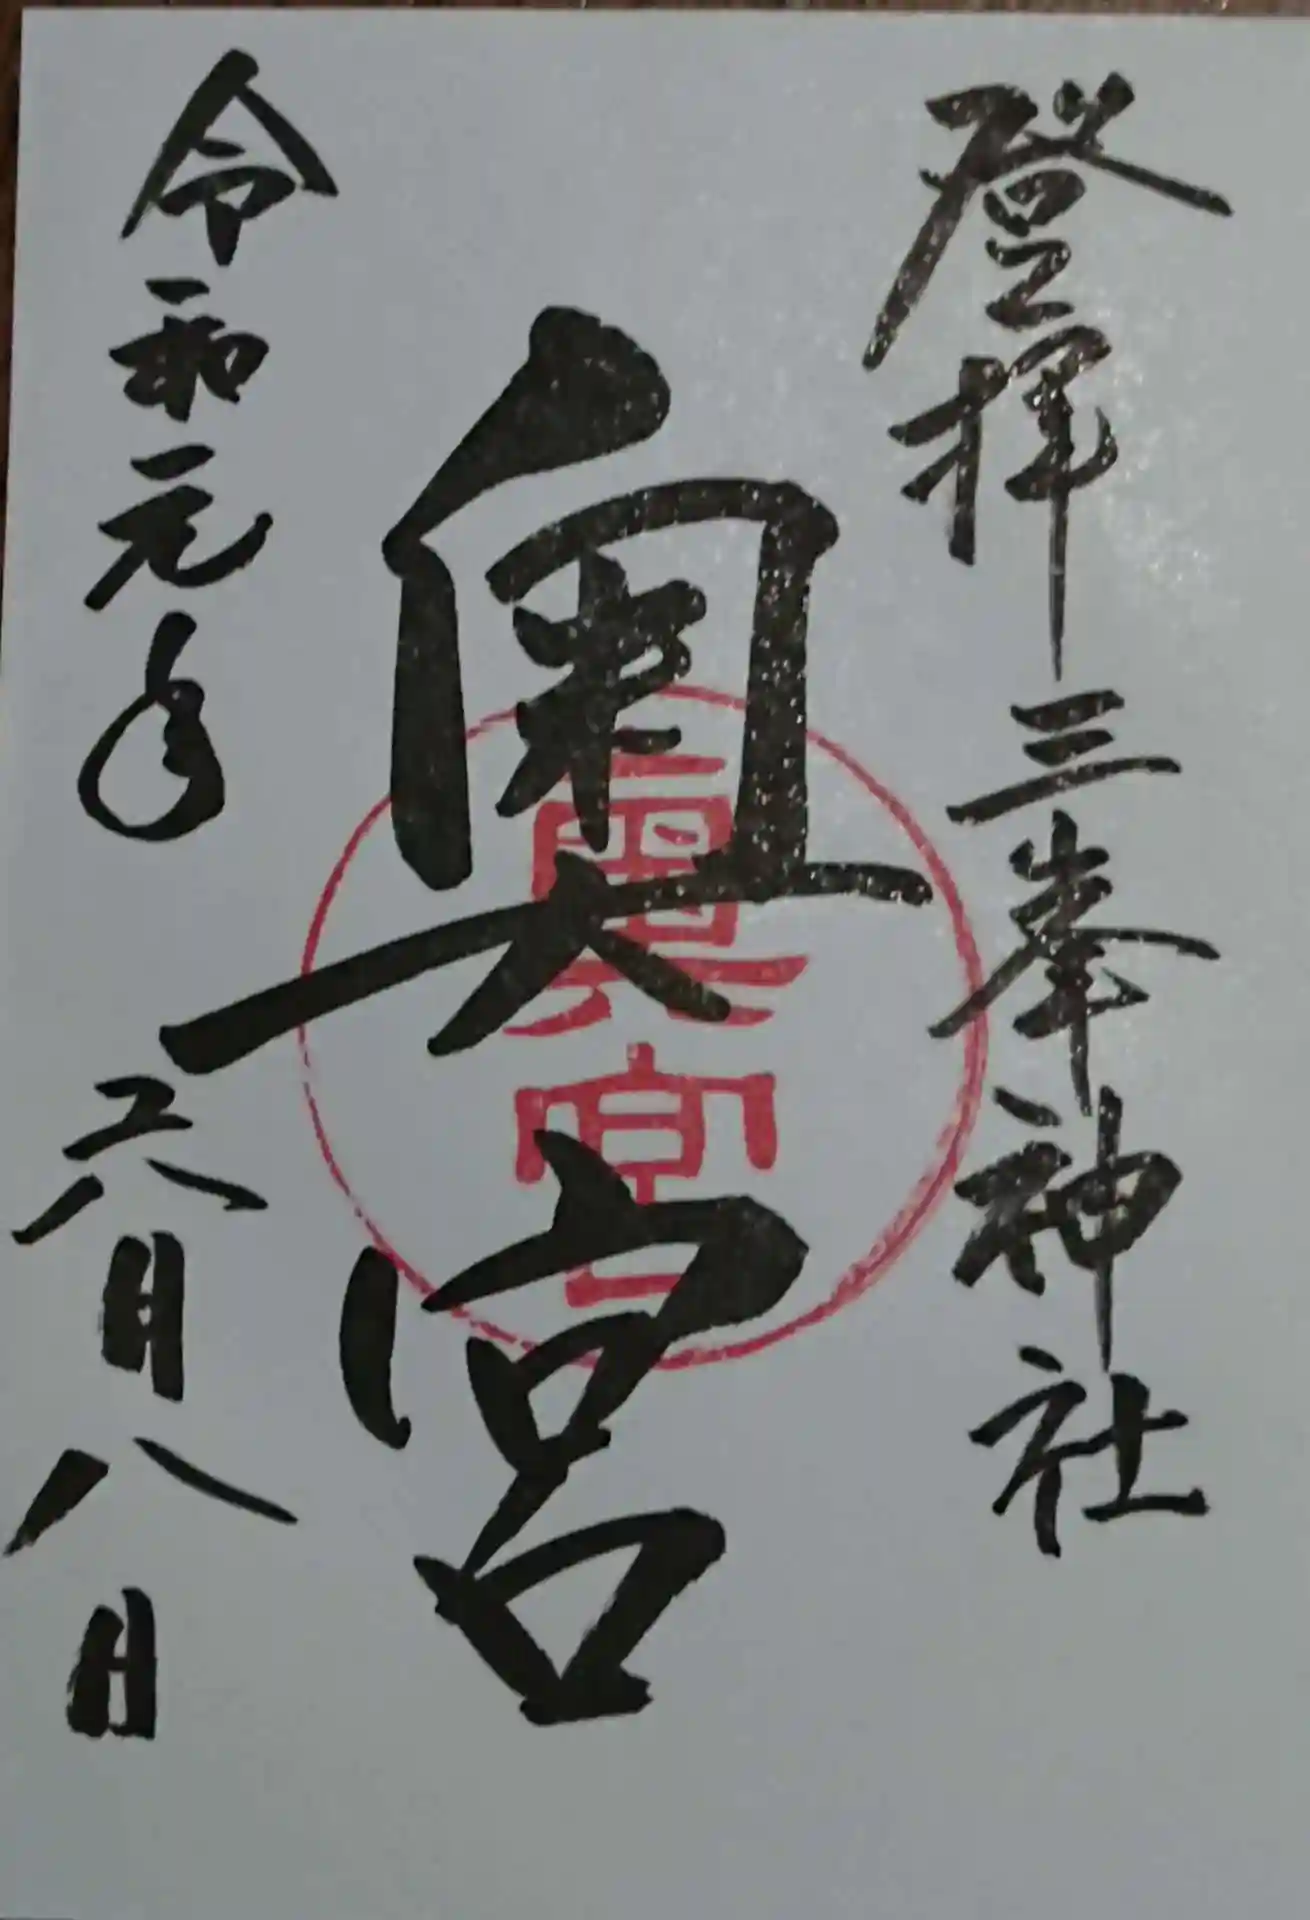 登拝 三峯神社
奥宮
奥宮
令和元年 六月八日